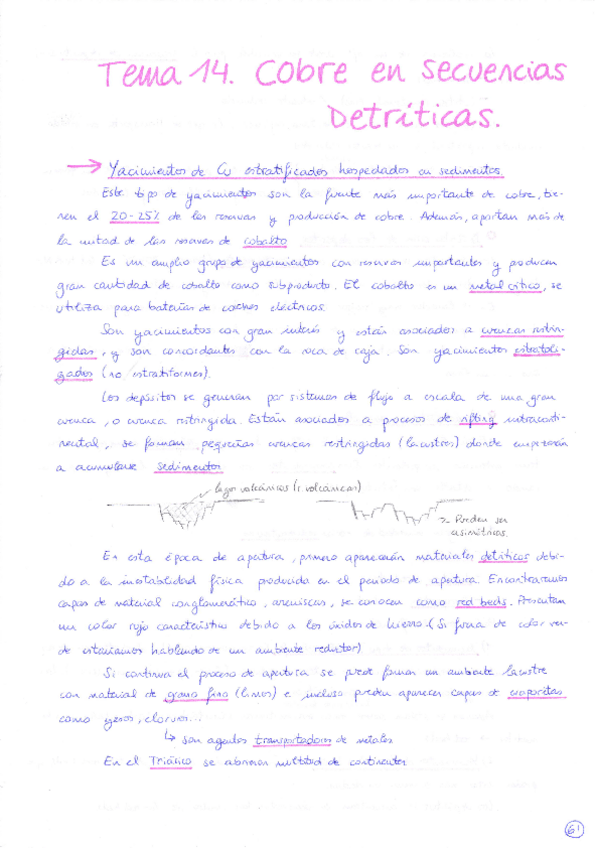 Tema 14. Cobre en secuencias
Detríticas.
→ Yacimientos de Cu estratificados hospedados en sedimentos
Este tipo de yacimientos son la fuente más importante de cobre, tie-
nen el 20-25% de las reservas y producción de cobre. Además, aportan más de
la mitad de las reservas de cobalto
Es un amplio grupo de yacimientos con reservas importantes y producen
gran cantidad de cobalto como subproducto. El cobalto es un metal crítico, se
utiliza para baterías de coches eléctricos.
Son yacimientos con gran interés y están asociados a cuencas restrin-
gidas, y son concordantes con la roca de caja. Son yacimientos
(no estratiformes).
Los depósitos se generan por sistemas de flujo a escala de una gran
cuenca, o cuenca restringida. Están asociados a procesos de rifting intraconti-
nental, se forman pequeñas cuencas restringidas (lacustres) donde empezarán
a acumularse sedimentos
lagos volcánicos (r. volcánicas)
→ Pueden ser
asimétricas.
En esta época de apertura, primero aparecerán materiales detríticos debi-
do a la inestabilidad física producida en el periodo de apertura. Encontraremos
capas de material conglomerático, areniscas, se conocen como red beds. Presentan
un color rojo característico debido a los óxidos de hierro. (Si fuera de color ver-
de estaríamos hablando de un ambiente reductor)
Si continua el proceso de apertura se puede formar un ambiente lacustre
con material de grano fino (limos) e incluso pueden aparecer capas de evaporitas
como yesos, cloruros...
↳ son agentes transportadores de metales
En el Triásico se abrieron multitud de continentes
61